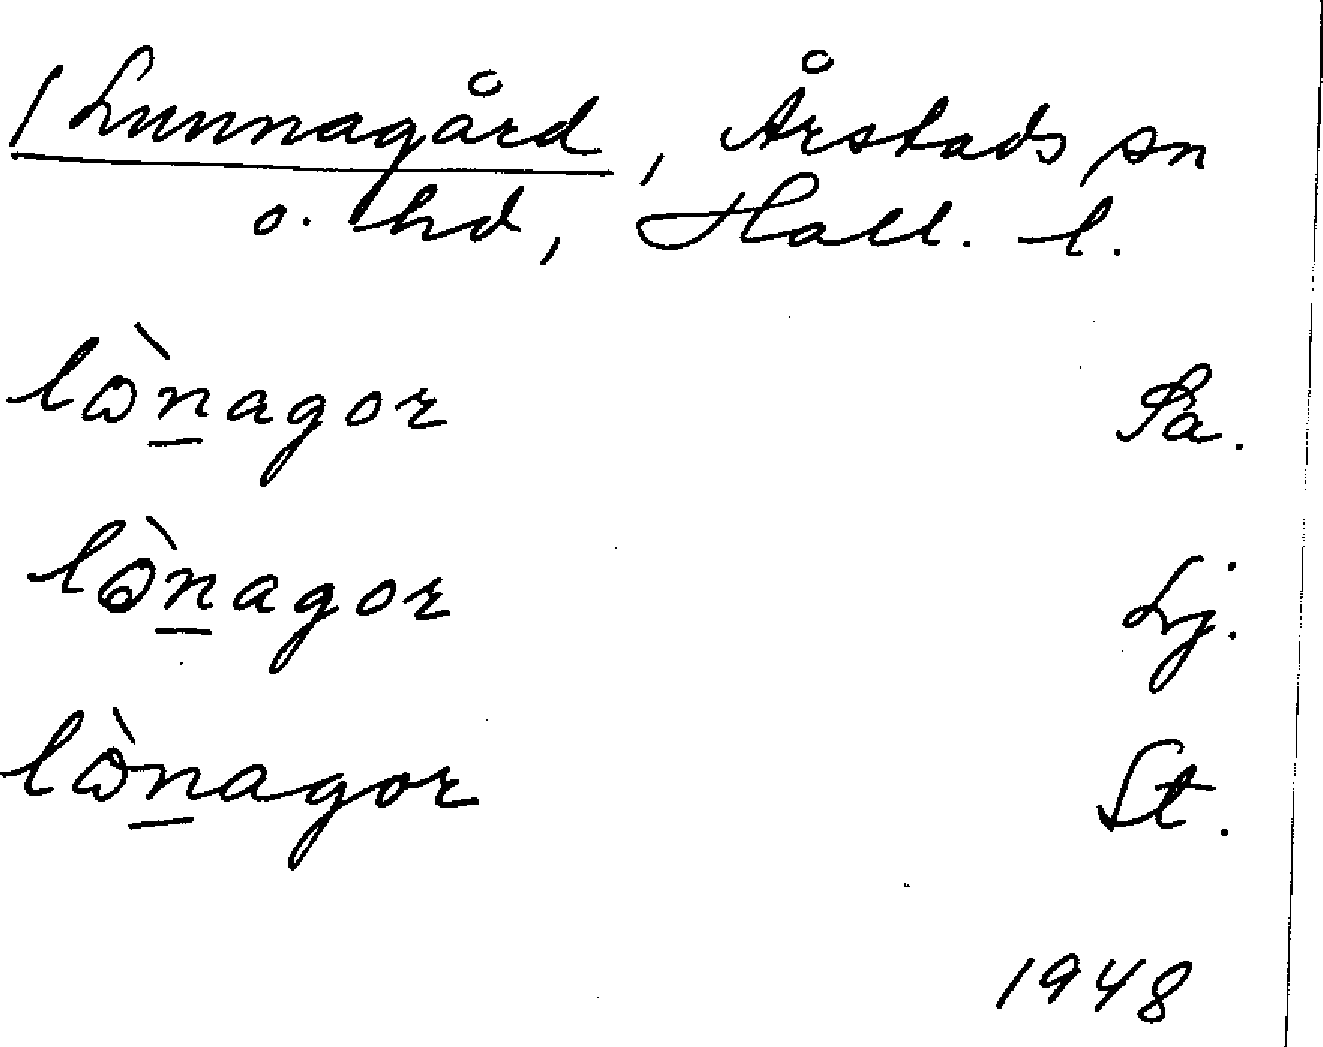 / Lunnagård, Årstads sn
o. hd, Hall. l.
lònagor Sa.
lònagor Lj.
lònagor St.
1948